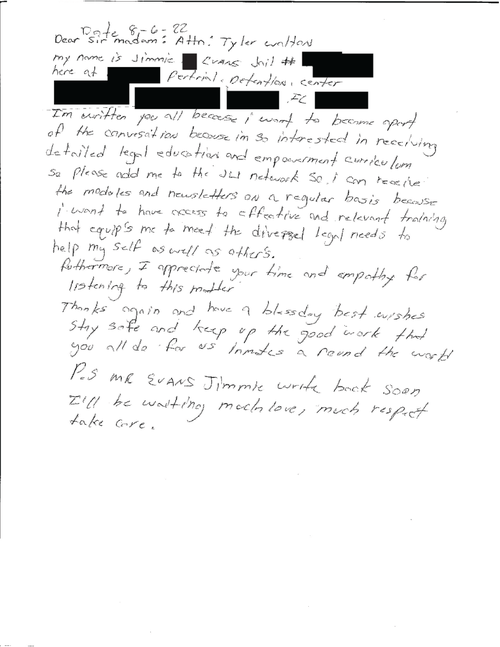 Date 8-6-22
Dear sir madam: Attn: Tyler walton
my name is Jimmie Evans Jail #
here at Pertrial, Detention, center
FL
I'm written you all because i want to became apart
of the conversation because im so interested in receiving
detailed legal education and empowerment curriculum
so please add me to the JLI network so i can receive
the modoles and newsletters on a regular basis because
i want to have access to effective and relevant training
that equip's me to meet the diversed legal needs to
help my self as well as other's.
futhermore, I appreciate your time and empathy for
listening to this matter
Thanks again and have a blessday best wishes
Stay safe and keep up the good work that
you all do for us inmates a round the world
P.S MR EVANS Jimmie write back soon
I'll be waiting much love, much respect
take care.